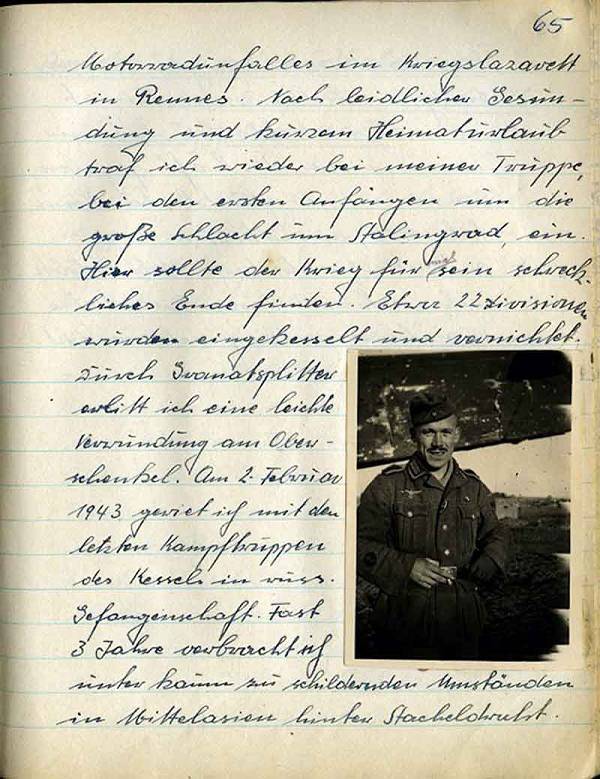 65
Motorradunfalles im Kriegslazarett
in Rennes. Nach leidlicher Gesun-
dung und kurzem Heimaturlaub
traf ich wieder bei meiner Truppe,
bei den ersten Anfängen um die
große Schlacht um Stalingrad, ein.
Hier sollte der Krieg für mich sein schreck-
liches Ende finden. Etwa 22 Divisionen
wurden eingekesselt und vernichtet.
Durch Granatsplitter
erlitt ich eine leichte
Verwundung am Ober-
schenkel. Am 2. Februar
1943 geriet ich mit den
letzten Kampftruppen
des Kessels in russ.
Gefangenschaft. Fast
3 Jahre verbracht ich
unter kaum zu schildernden Umständen
in Mittelasien hinter Stacheldraht.